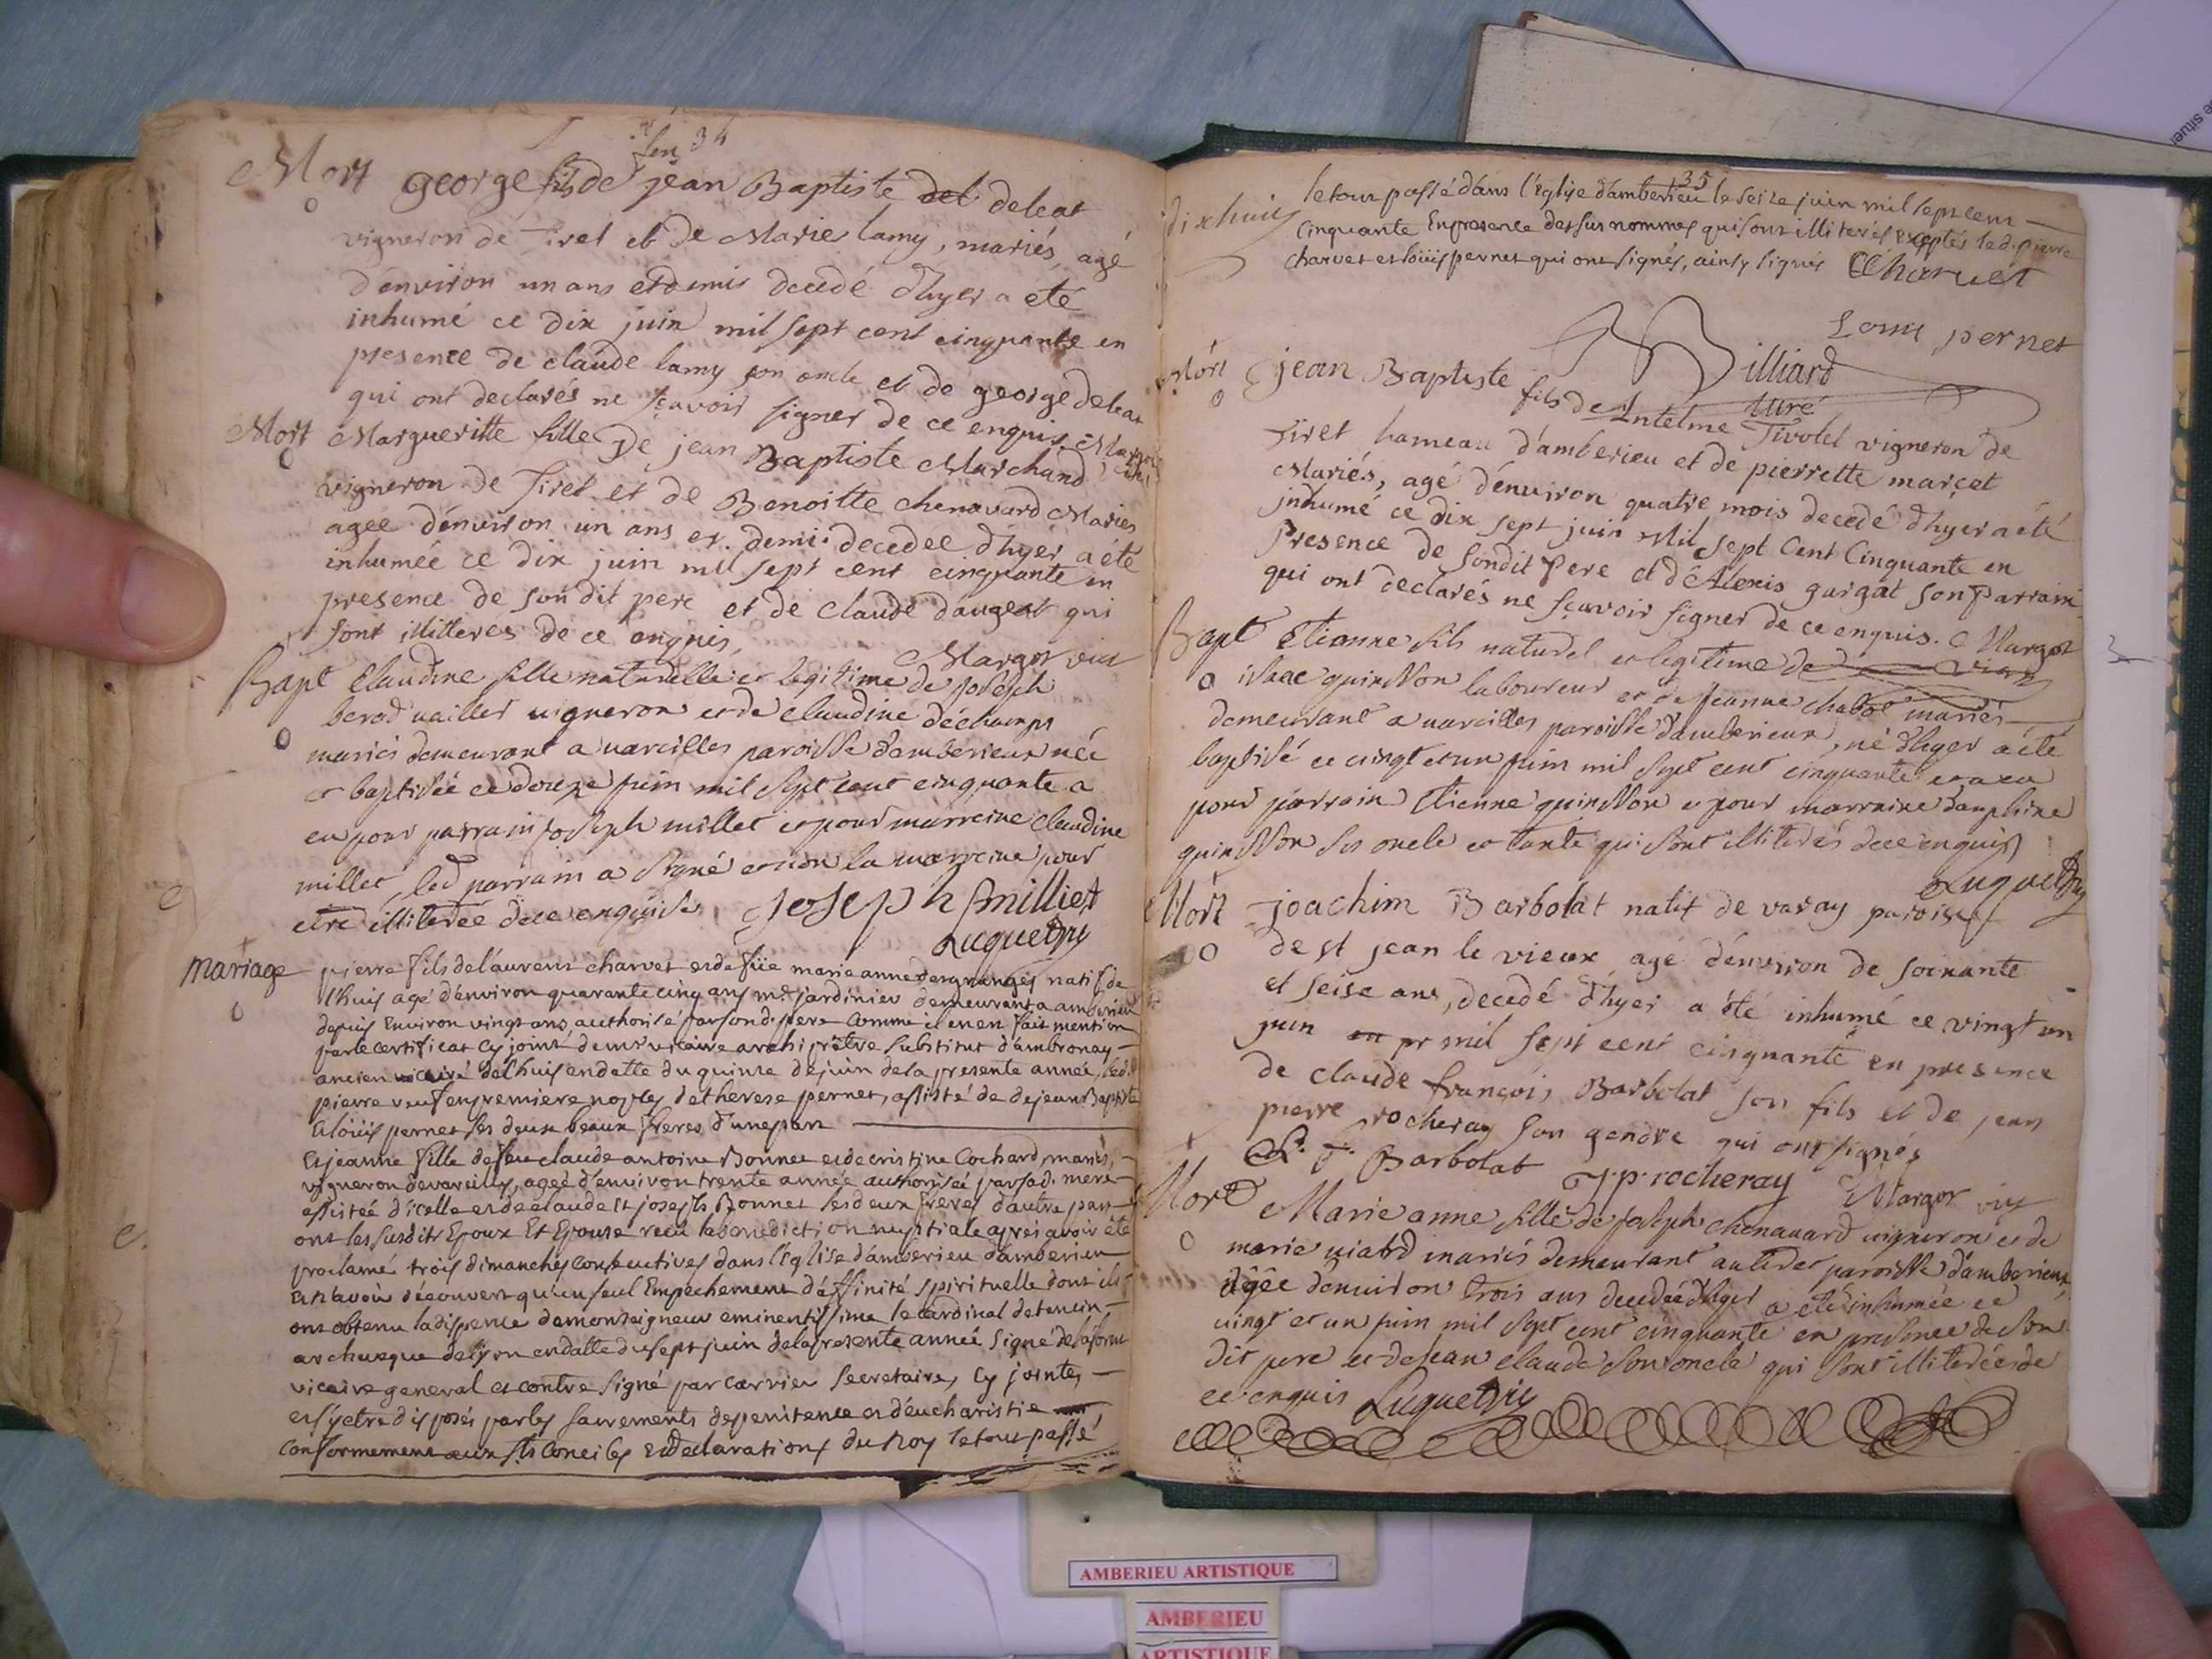 34
Mort george fils de feu jean Baptiste del deleat
vigneron de Tiret et de Marie lamy, mariés, agé
d'environ un ans et demis decedé d'hyer a eté
inhumé ce dix juin mil sept cent cinquante en
presence de claude lamy son oncle et de george deleat
qui ont declarés ne sçavoir signer de ce enquis Margot
Mort Margueritte fille De jean Baptiste Marchand
vigneron de Tiret et de Benoitte chenavard Maries
agée d'environ un ans et demi decedee d'hyer a été
inhumée ce dix juin mil sept cent cinquante en
presence de son dit pere et de Claude daugeat qui
sont illitteres de ce enquis, Margot vic
Bapt Claudine fille naturelle et legitime de joseph
berod vailler vigneron et de claudine déchamps
mariés demeurant a vareilles paroisse d'amberieux née
et baptisée ce douze juin mil sept cent cinquante a
eu pour parrain joseph millet et pour marreine claudine
millet, led parrain a signé et non la marreine pour
etre illiterée de ce enquise, Joseph Milliet
Luguet
mariage pierre fils de laurens charvet et de füe marie anne desgranges natif de
l'huis agé d'environ quarante cinq ans me jardinier demeurant a amberieu
depuis Environ vingt ans, authorisé par son d. pere comme il en en fait mention
par le certificat cy joint de mr vicaire archiprêtre substitut d'ambronay
ancien curé de l'huis en datte du quinze de juin de la presente année, led.
pierre veuf en premiere nopces de therese pernet, assisté de de jean Baptiste
& loüis pernet ses deux beaux freres d'une part
Et jeanne fille de feu claude antoine Bonnet et de cristine Cochard, mariés,
vigneron de vareilles, agée d'environ trente année authorisée par sad. mere
assistée d'icelle et de claude et joseph Bonnet ses deux freres d'autre part
ont les susdits Epoux Et Epouse reçu la benediction nuptiale apres avoir été
proclamé trois dimanches consecutives dans l'église d'amberieu d'amberieu
et n'avoir découvert qu'un seul Empechement d'affinité spirituelle dont ils
ont obtenu la dispense de monseigneur eminentissime le cardinal de tencin
archeveque de lyon en datte du sept juin de la presente année Signé de la font
vicaire general et contre signé par carrier secretaire, cy jointe,
et s'y etre disposés par les sacrements de penitence et d'eucharistie
conformement aux sts conciles et declarations du Roy le tout passé
35
le tout passé dans l'église d'amberieu le seize juin mil sept cent
dixhuis cinquante En presence des sus nommes qui sont illiterés exceptés led. pierre
charvet et loüis pernet qui ont signés, ainsy signés Charvet
Louis pernet
Billiard
curé
Mort jean Baptiste fils de Antelme Tivolet vigneron de
Tiret hameau d'amberieu et de pierrette marcet
Mariés, agé d'environ quatre mois decedé d'hyer a été
jnhumé ce dix sept juin Mil sept Cent Cinquante en
Presence de Son dit Pere et d'Alexis gargat son Parrain
qui ont declarés ne sçavoir signer de ce enquis. Margot
Bapt Etienne fils naturel et legitime de
isaac quinsson laboureur et de jeanne chabot mariés
demeurant a vareilles paroisse d'amberieux, né d'hyer a été
baptisé ce vingt et un juin mil sept cent cinquante et a eu
pour parrain Etienne quinsson et pour marraine dauphine
quinsson ses oncle et tante qui sont illiterés de ce enquis
Luguet
Mort joachim Barbolat natif de varay paroisse
de st jean le vieux agé d'environ de soixante
et seise ans, decedé d'hyer a été inhumé ce vingt un
juin en pr mil sept cent cinquante en presence
de claude françois Barbolat son fils et de jean
pierre rocheray son gendre qui ont signés
C. F. Barbolat J. p. rocheray Margot vic
Mort Marie anne fille de joseph chenavard vigneron et de
marie viard mariés demeurant au tiret paroisse d'amberieux,
âgée d'environ trois ans decedée d'hyer a été inhumée ce
vingt et un juin mil sept cent cinquante en presence de son
dit pere et de jean claude son oncle qui sont illiterées de
ce enquis Luguet
AMBERIEU ARTISTIQUE
AMBERIEU
ARTISTIQUE